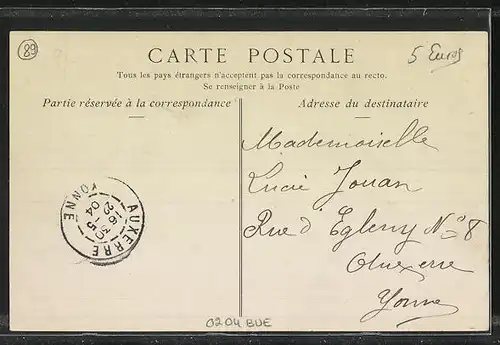 89
5 Euros
CARTE POSTALE
Tous les pays étrangers n'acceptent pas la correspondance au recto.
Se renseigner à la Poste
Partie réservée à la correspondance
Adresse du destinataire
Mademoiselle
Lucie Jouan
Rue d'Egleny N° 8
Auxerre
Yonne
AUXERRE
16 30
22 - 5
04
YONNE
0204 BUE